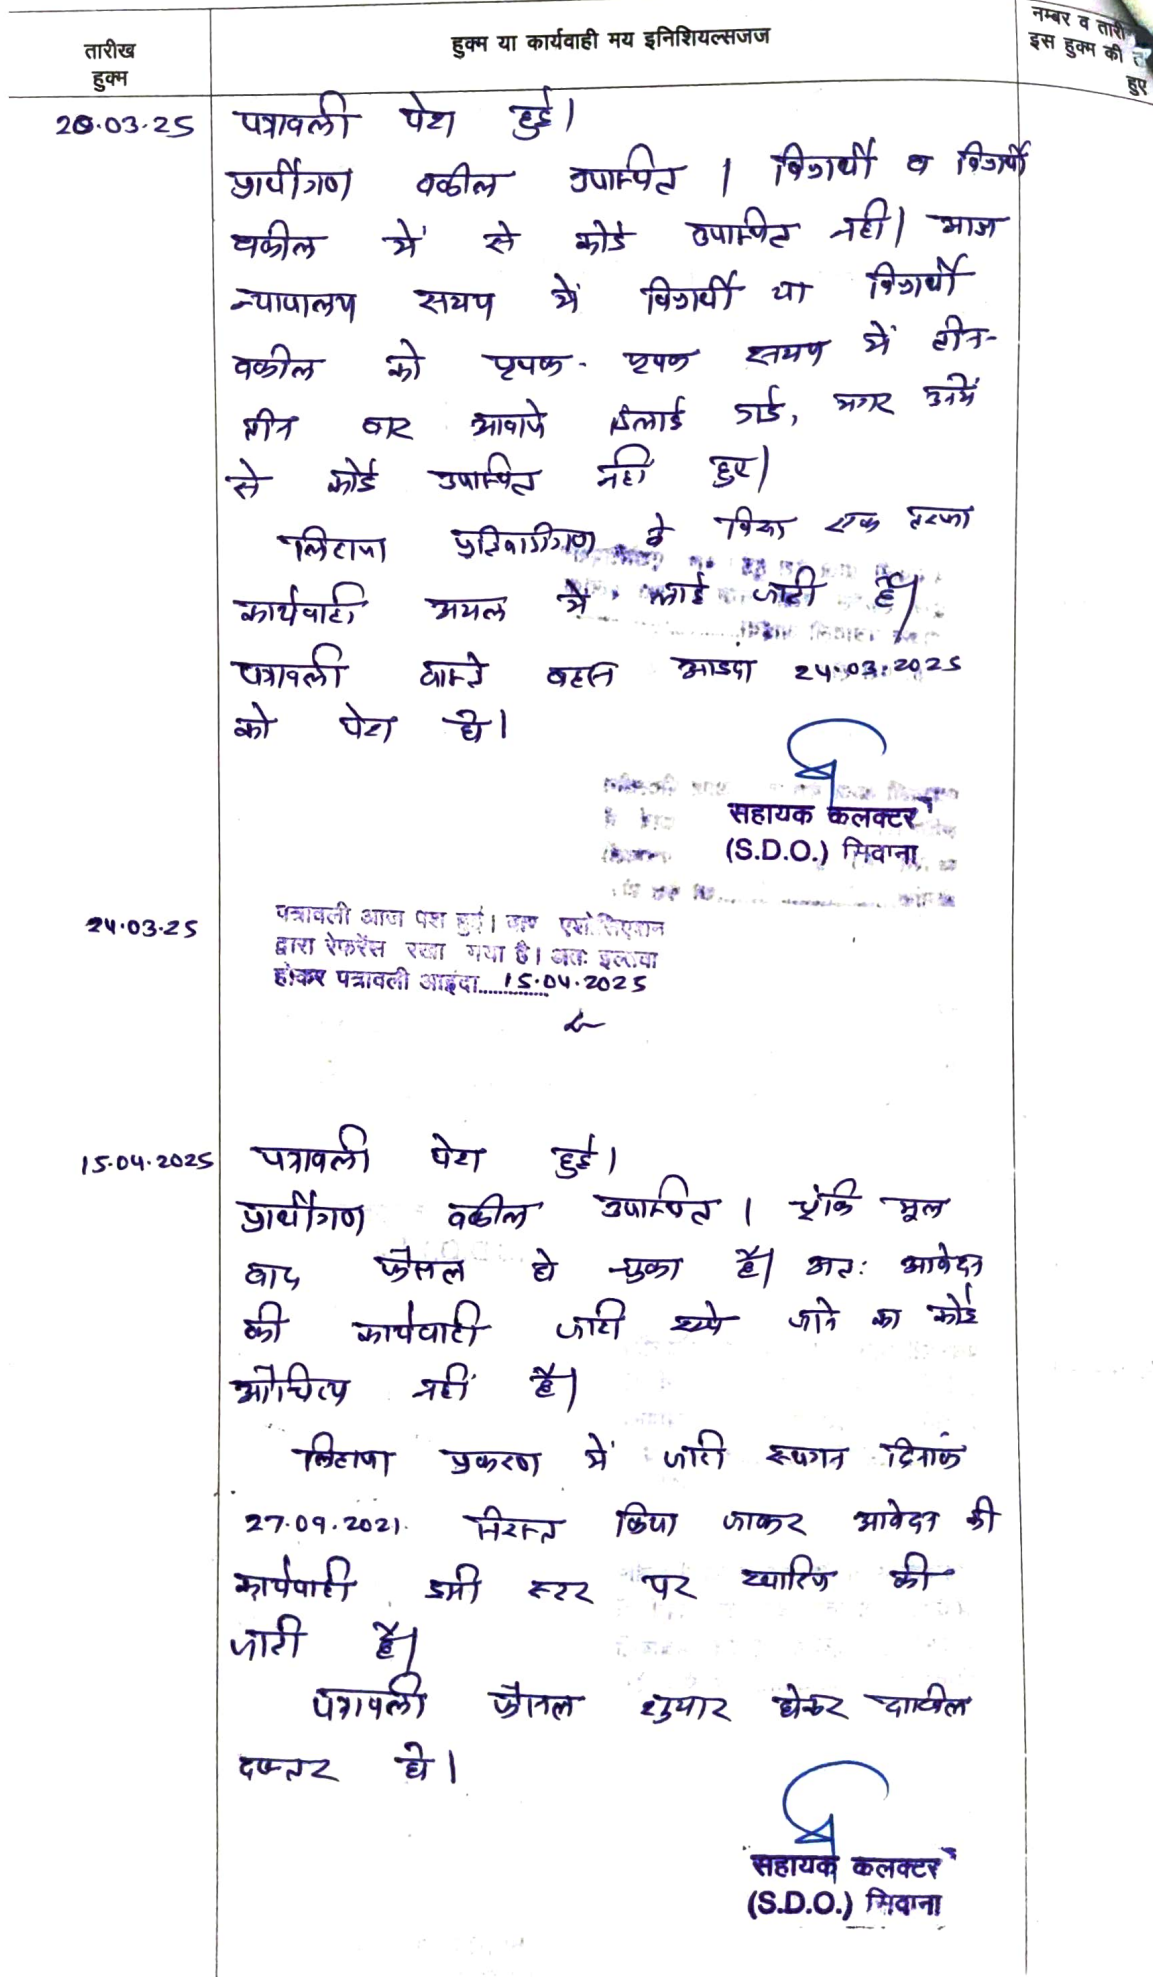 तारीख
हुक्म
हुक्म या कार्यवाही मय इनिशियल्सजज
नम्बर व तारी
इस हुक्म की त
हुए
20.03.25
पत्रावली पेश हुई।
प्रार्थीगण वकील उपस्थित । विप्रार्थी व विप्रार्थी
वकील में से कोई उपस्थित नहीं। आज
न्यायालय समय में विप्रार्थी या विप्रार्थी
वकील को पृथक- पृथक समय में तीन-
तीन बार आवाजे दिलाई गई, मगर उनमें
से कोई उपस्थित नहीं हुए।
लिहाजा प्रतिवादीगण के विरूद्ध एक तरफा
कार्यवाही अमल में लाई जाती है।
पत्रावली वास्ते बहस आइंदा 24.03.2025
को पेश हो।
सहायक कलक्टर
(S.D.O.) सिवाना
24.03.25
पत्रावली आज पेश हुई। बार एसोसिएशन
द्वारा रेफरेंस रखा गया है। अतः इल्तवा
होकर पत्रावली आइंदा.........15.04.2025
15.04.2025
पत्रावली पेश हुई।
प्रार्थीगण वकील उपस्थित । चूंकि मूल
वाद फैसल हो चुका है। अतः आवेदन
की कार्यवाही जारी रखे जाने का कोई
औचित्य नहीं है।
लिहाजा प्रकरण में जारी स्थगन दिनांक
27.09.2021. निरस्त किया जाकर आवेदन की
कार्यवाही इसी स्तर पर खारिज की
जाती है।
पत्रावली फैसल शुमार होकर दाखिल
दफ्तर हो।
सहायक कलक्टर
(S.D.O.) सिवाना